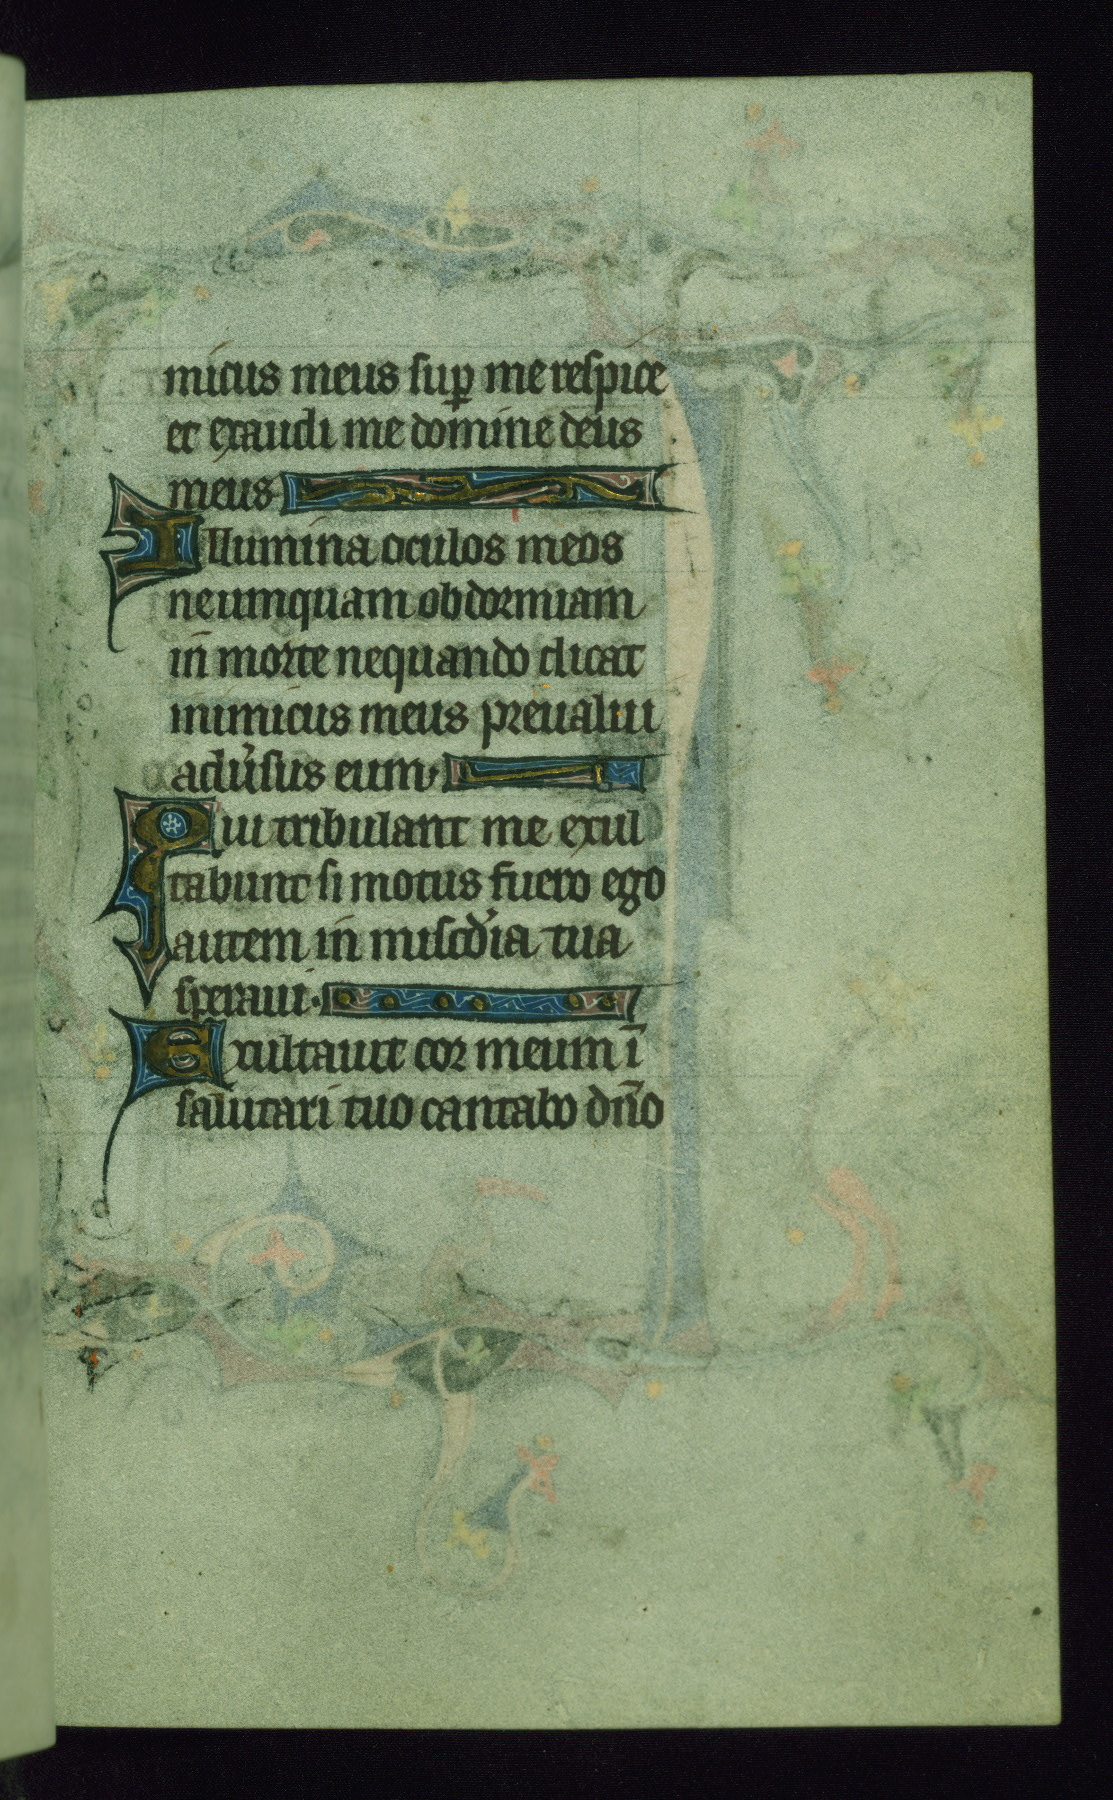 micus meus sup̱ me respice
et exaudi me domine deus
meus
Illumina oculos meos
ne umquam obdormiam
in̄ morte nequando dicat
inimicus meus preualui
adu̓sus eum
Qui tribulant me exul
tabunt si motus fuero ego
autem in misc̓dia tua
speraui
Exultauit cor meum ī
salutari tuo cantabo dn̄o